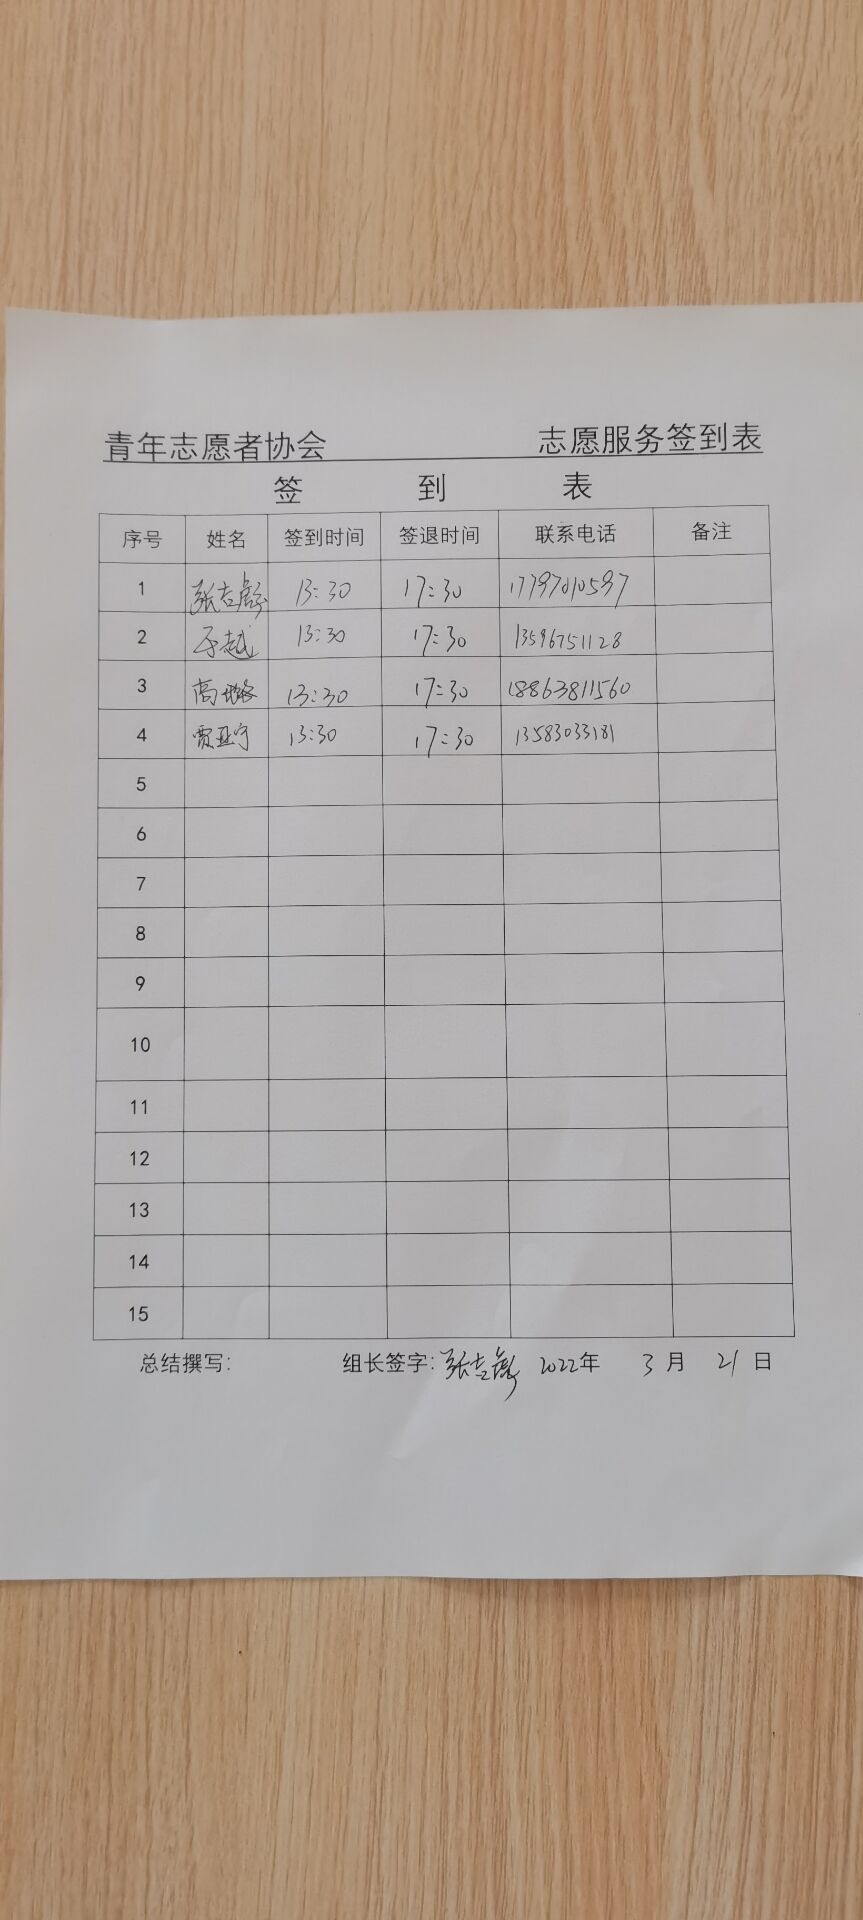 青年志愿者协会 志愿服务签到表
签 到 表
序号 姓名 签到时间 签退时间 联系电话 备注
1 张吉彪 13:30 17:30 17797010597
2 于越 13:30 17:30 13596751128
3 高 13:30 17:30 18863811560
4 贾亚宁 13:30 17:30 13583033181
5
6
7
8
9
10
11
12
13
14
15
总结撰写： 组长签字：张吉彪 2022年 3月 21日